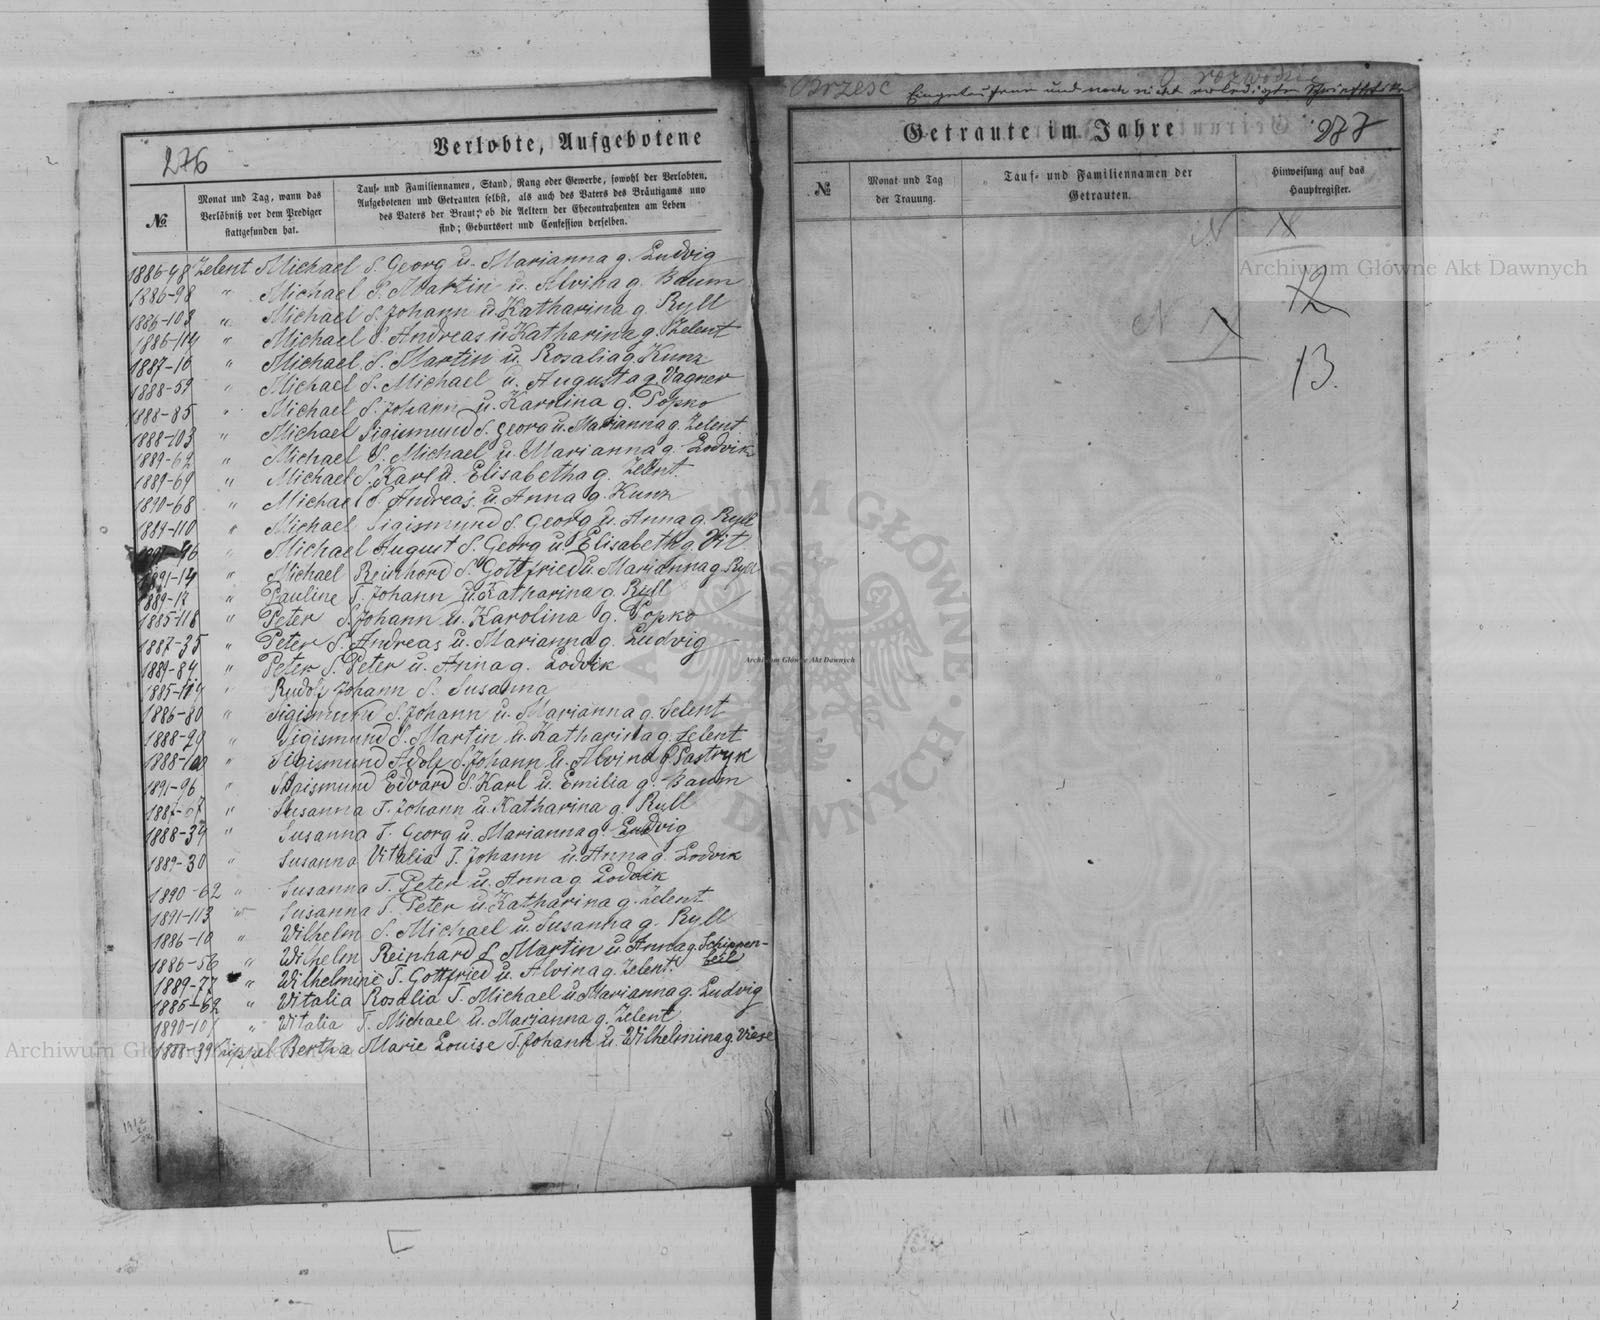 276
Verlobte, Aufgebotene
№
Monat und Tag, wann das
Verlöbniß vor dem Prediger
stattgefunden hat.
Tauf- und Familiennamen, Stand, Rang oder Gewerbe, sowohl der Verlobten,
Aufgebotenen und Getrauten selbst, als auch des Vaters des Bräutigams und
des Vaters der Braut; ob die Aeltern der Ehecontrahenten am Leben
sind; Geburtsort und Confession derselben.
1886-48 Zelent Michael S. Georg u. Marianna g. Ludvig
1886-98 " Michael S. Martin u. Alvina g. Baum
1886-103 " Michael S. Johann u. Katharina g. Ryll
1886-114 " Michael S. Andreas u. Katharina g. Zelent
1887-16 " Michael S. Martin u. Rosalia g. Kunz
1888-59 " Michael S. Michael u. Augusta g. Vagner
1888-85 " Michael S. Johann u. Karolina g. Popko
1888-103 " Michael Sigismund S. Georg u. Marianna g. Zelent
1889-62 " Michael S. Michael u. Marianna g. Lodvik
1889-69 " Michael S. Karl u. Elisabetha g. Zelent.
1890-68 " Michael S. Andreas u. Anna g. Kunz
1889-110 " Michael Sigismund S. Georg u. Anna g. Ryll
96 " Michael August S. Georg u. Elisabeth g. Vit
1891-14 " Michael Reinhord S. Gottfried u. Marianna g. Ryll
1889-12 " Pauline T. Johann u. Katharina g. Ryll
1885-118 " Peter S. Johann u. Karolina g. Popko
1887-35 " Peter S. Andreas u. Marianna g. Ludvig
1889-84 " Peter S. Peter u. Anna g. Lodvik
1885-119 " Rudolf Johann S. Susanna
1886-80 " Sigismund S. Johann u. Marianna g. Selent
1888-29 " Sigismund S. Martin u. Katharina g. Zelent
1888-100 " Sigismund Adolf S. Johann u. Alvina g. Pastryk
1891-96 " Sigismund Edvard S. Karl u. Emilia g. Baum
1887- " Susanna T. Johann u. Katharina g. Ryll
1888-34 " Susanna T. Georg u. Marianna g. Ludvig
1889-30 " Susanna Vitalia T. Johann u. Anna g. Lodvik
1890-62 " Susanna T. Peter u. Anna g. Lodvik
1891-113 " Susanna T. Peter u. Katharina g. Zelent
1886-10 " Wilhelm S. Michael u. Susanna g. Ryll
1886-56 " Wilhelm Reinhard S. Martin u. Anna g. Schippen-
beil
1889-77 " Wilhelmine T. Gottfried u. Alvina g. Zelent.
1885-62 " Witalia Rosalia T. Michael u. Marianna g. Ludvig
1890-10 " Witalia T. Michael u. Marianna g. Zelent
1888-39 Zippel Bertha Marie Louise T. Johann u. Wilhelmina g. Viese
Brzesc
Eingelaufene und noch nicht erledigte
Getraute im Jahre
277
№
Monat und Tag
der Trauung.
Tauf- und Familiennamen der
Getrauten.
Hinweisung auf das
Hauptregister.
N X
12
N X
13.
Archiwum Główne Akt Dawnych
Archiwum Główne Akt Dawnych
Archiwum Główne Akt Dawnych
ARCHIWUM GŁÓWNE AKT DAWNYCH